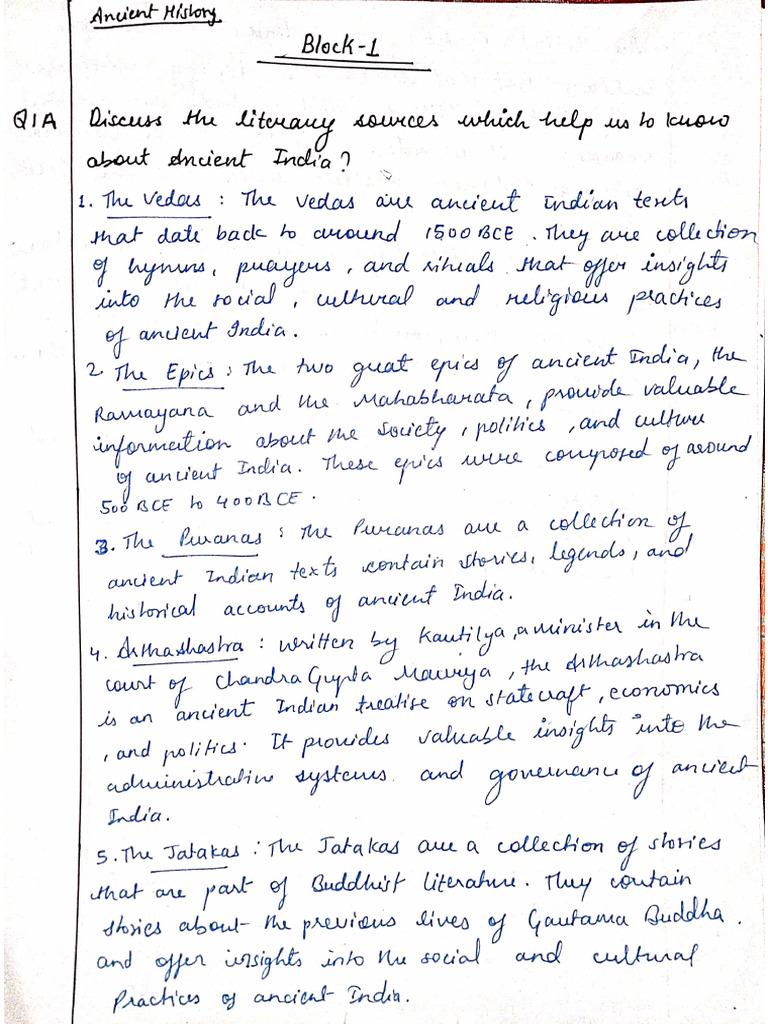 Ancient History
Block-1
Q1A Discuss the literary sources which help us to know
about Ancient India?
1. The Vedas : The Vedas are ancient Indian texts
that date back to around 1500 BCE. They are collection
of hymns, prayers, and rituals that offer insights
into the social, cultural and religious practices
of ancient India.
2. The Epics : The two great epics of ancient India, the
Ramayana and the Mahabharata, provide valuable
information about the society, politics, and culture
of ancient India. These epics were composed of around
500 BCE to 400 BCE.
3. The Puranas : The Puranas are a collection of
ancient Indian texts contain stories, legends, and
historical accounts of ancient India.
4. Arthashastra : written by Kautilya, a minister in the
court of Chandra Gupta Maurya, the Arthashastra
is an ancient Indian treatise on statecraft, economics
, and politics. It provides valuable insights into the
administrative systems and governance of ancient
India.
5. The Jatakas : The Jatakas are a collection of stories
that are part of Buddhist literature. They contain
stories about the previous lives of Gautama Buddha.
and offer insights into the social and cultural
Practices of ancient India.